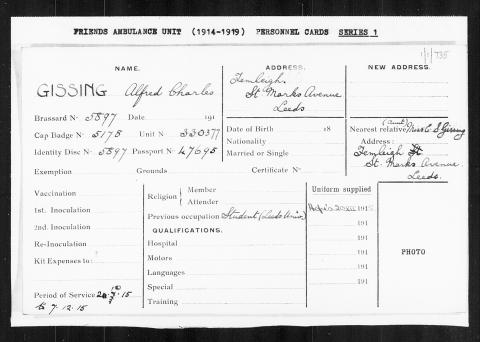 FRIENDS AMBULANCE UNIT (1914-1919) PERSONNEL CARDS SERIES 1
NAME.
GISSING Alfred Charles
Brassard Nº 5897 Date 191
Cap Badge Nº 5175 Unit Nº 330377
Identity Disc Nº 5897 Passport Nº 47695
Exemption Grounds
ADDRESS.
Fernleigh
St. Marks Avenue
Leeds
Date of Birth 18
Nationality
Married or Single
Certificate Nº
NEW ADDRESS.
(Aunt)
Nearest relative Gissing
Address:
Fernleigh St
St. Marks Avenue
Leeds.
Vaccination
1st. Inoculation
2nd. Inoculation
Re-Inoculation
Kit Expenses to:
Period of Service 15
to 7.12.15
Religion { Member
Attender
Previous occupation Student (Leeds Univ.)
QUALIFICATIONS.
Hospital
Motors
Languages
Special
Training
Uniform supplied
1915
191
191
191
191
191
PHOTO